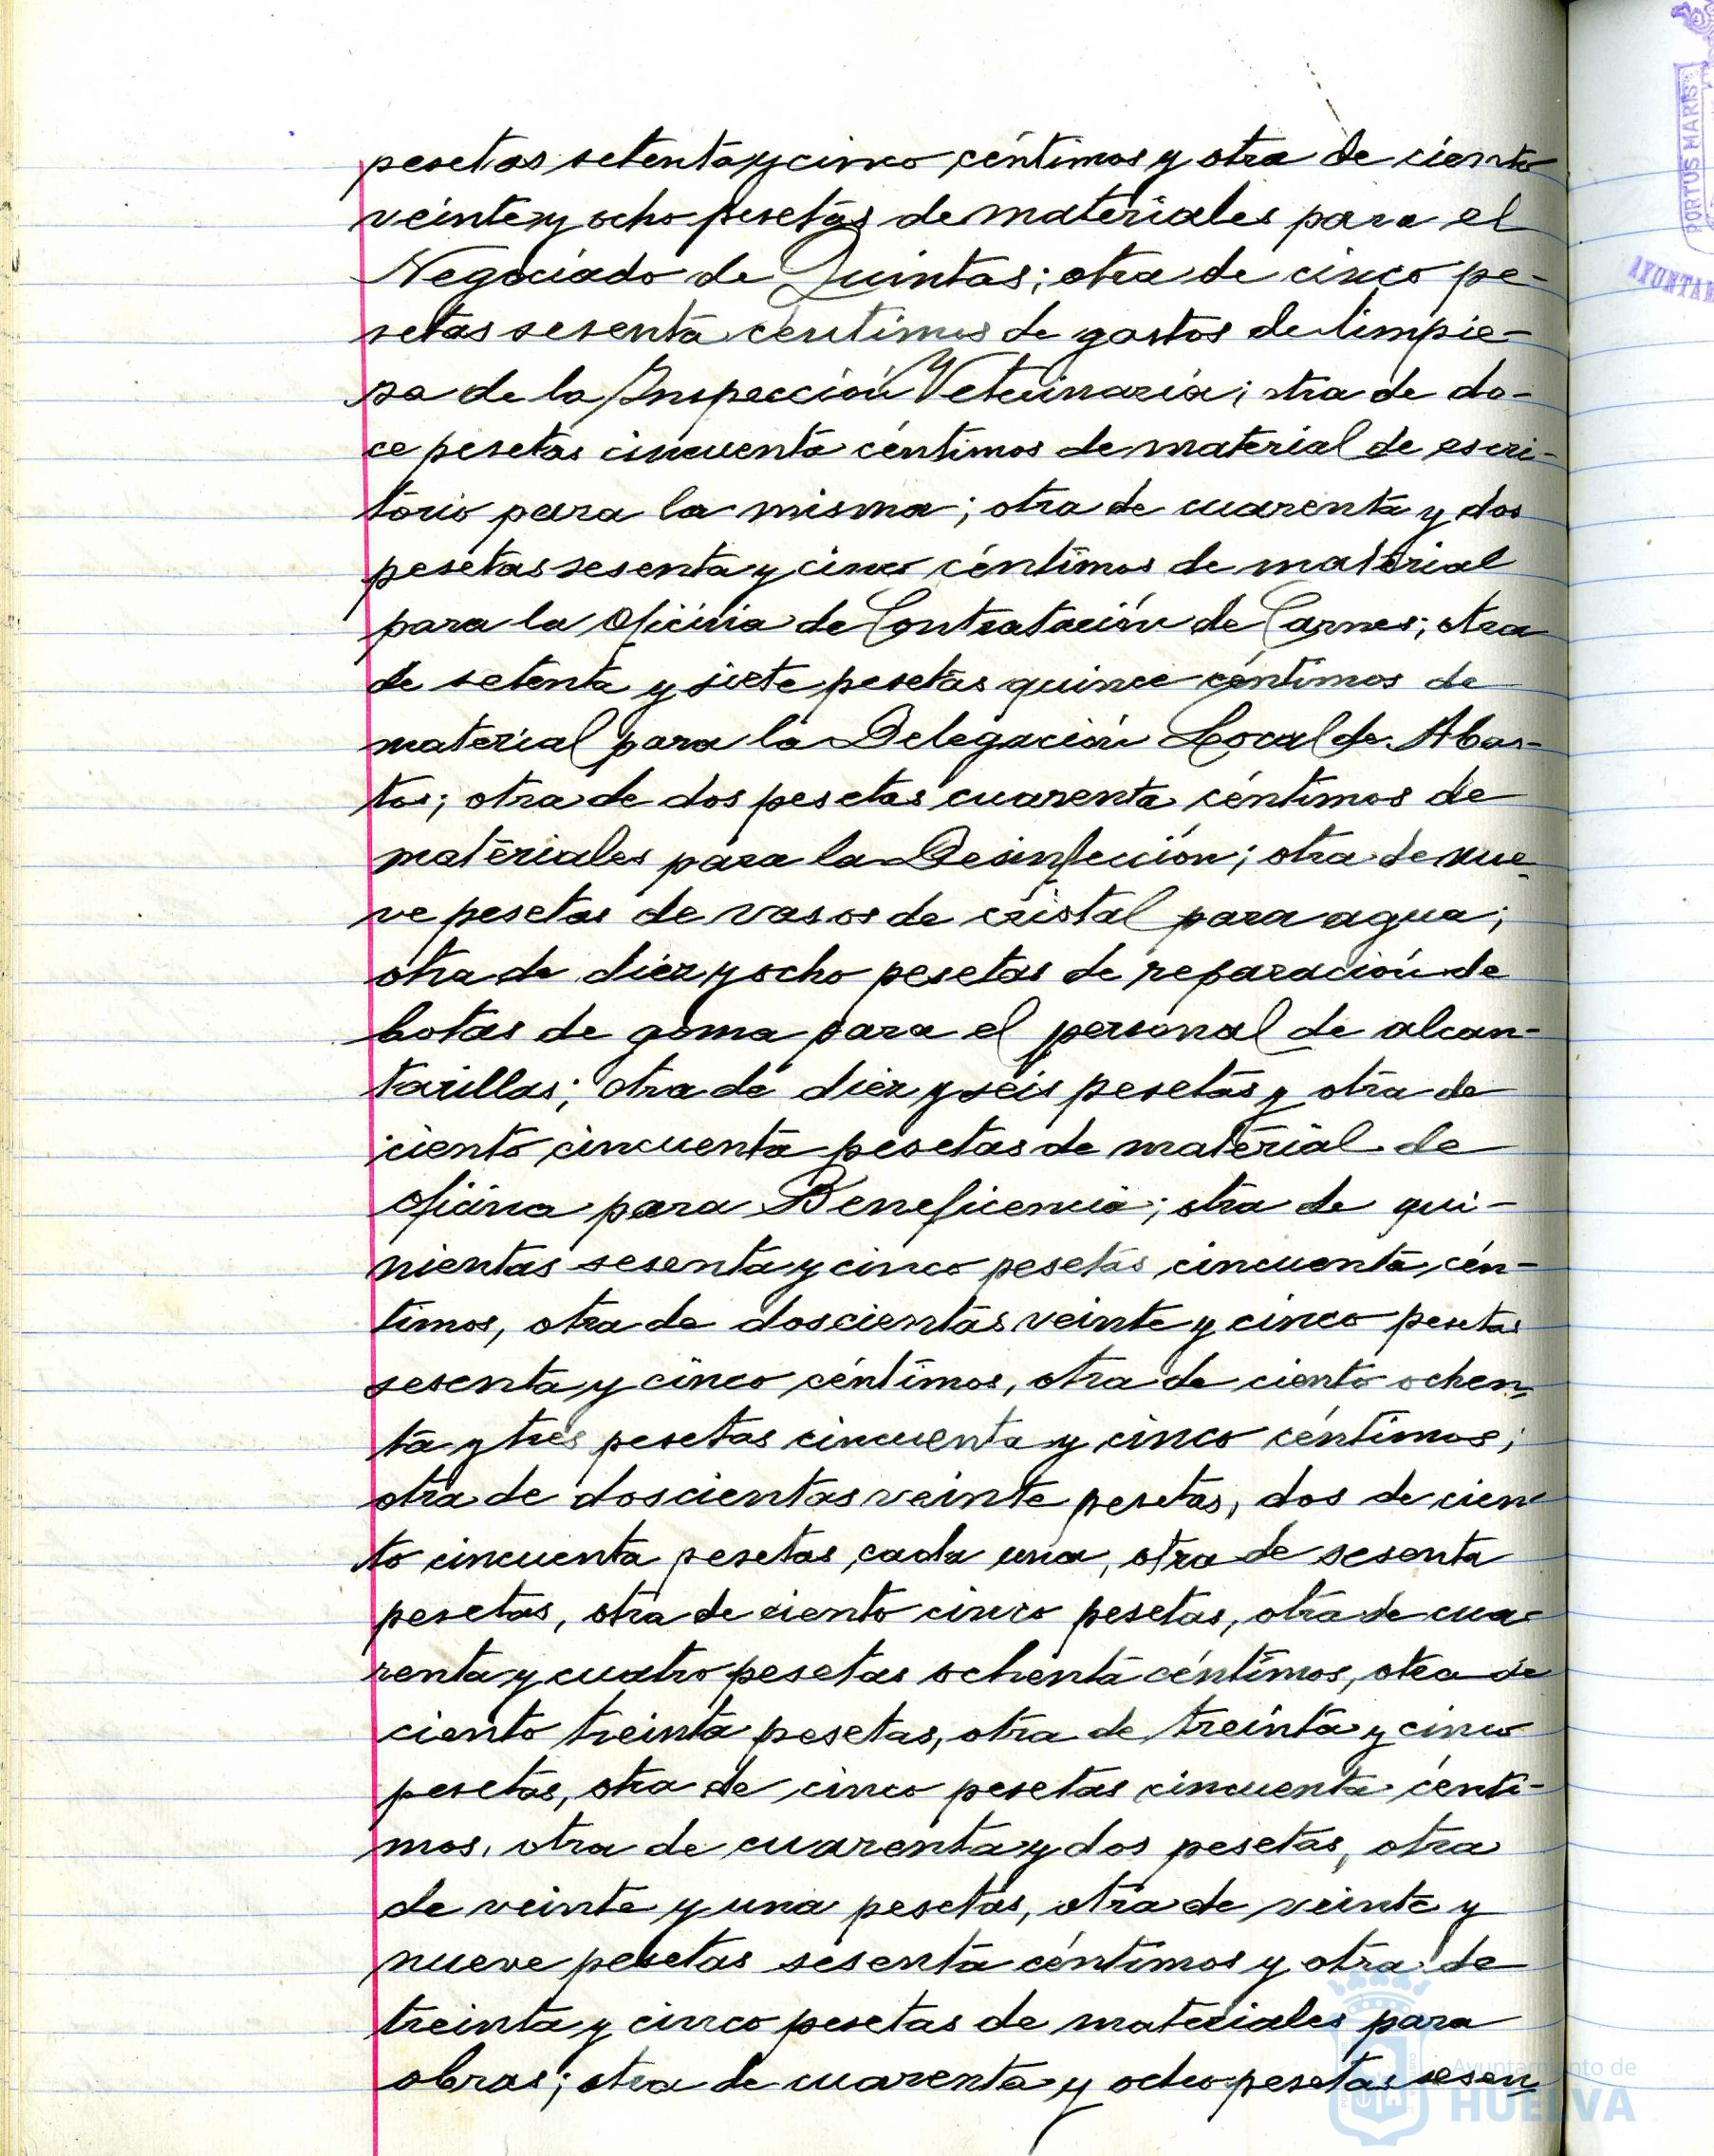 pesetas setenta y cinco céntimos y otra de ciento
veinte y ocho pesetas de materiales para el
Negociado de Quintas; otra de cinco pe-
setas sesenta centimos de gastos de limpie-
sa de la Inspección Veterinaria; otra de do-
ce pesetas cincuenta céntimos de material de escri-
torio para la misma; otra de cuarenta y dos
pesetas sesenta y cinco céntimos de material
para la Oficina de Contratación de Carnes; otra
de setenta y siete pesetas quince céntimos de
material para la Delegación Local de Abas-
tos; otra de dos pesetas cuarenta céntimos de
materiales para la Desinfección; otra de nue-
ve pesetas de vasos de cristal para agua;
otra de diez y ocho pesetas de reparación de
botas de goma para el personal de alcan-
tarillas; otra de diez y seis pesetas y otra de
ciento cincuenta pesetas de material de
oficina para Beneficencia; otra de qui-
nientas sesenta y cinco pesetas cincuenta cén-
timos, otra de doscientas veinte y cinco pesetas
sesenta y cinco céntimos, otra de ciento ochen-
ta y tres pesetas cincuenta y cinco céntimos;
otra de doscientas veinte pesetas, dos de cien-
to cincuenta pesetas cada una, otra de sesenta
pesetas, otra de ciento cinco pesetas, otra de cua-
renta y cuatro pesetas ochenta céntimos, otra de
ciento treinta pesetas, otra de treinta y cinco
pesetas, otra de cinco pesetas cincuenta cénti-
mos, otra de cuarenta y dos pesetas, otra
de veinte y una pesetas, otra de veinte y
nueve pesetas sesenta céntimos y otra de
treinta y cinco pesetas de materiales para
obras; otra de cuarenta y ocho pesetas sesen-
PORTUS MARIS
AYUNTAM
Ayuntamiento de
HUELVA